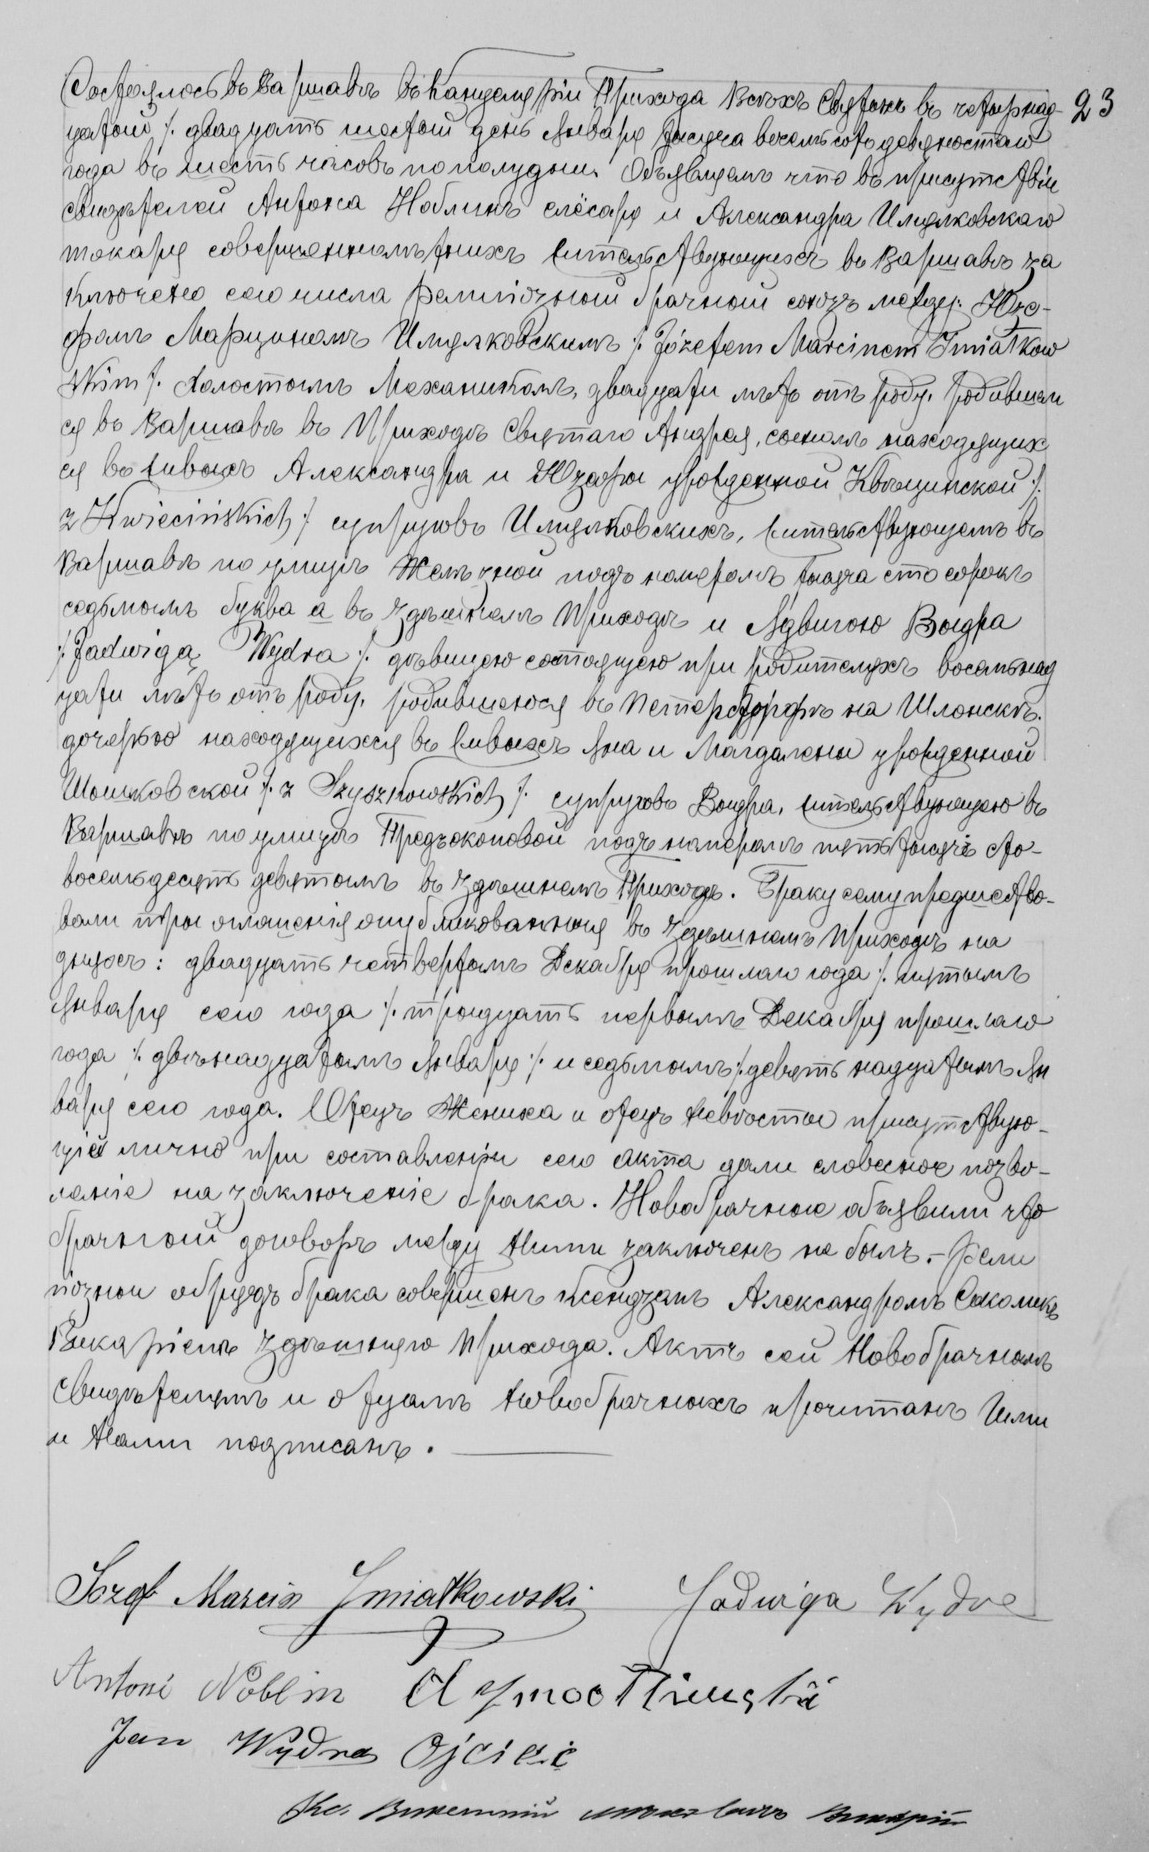 Состоялось въ Варшавѣ въ Канцеляріи Прихода Всѣхъ Святыхъ въ четырнад- 23
цатый /. двадцать шестой день Января тысяча восемьсотъ девяностаго
года въ шесть часовъ пополудни. Объявляемъ что въ присутствіи
свидѣтелей Антона Ноблинъ слѣсаря и Александра Имялковскаго
токаря совершеннолѣтнихъ жительствующихъ въ Варшавѣ за
ключено сего числа религіозный брачный союзъ между: Юзе-
фомъ Марциномъ Имялковскимъ /. Józefem Marcinem Imiałkow
skim /. холостымъ Механикомъ, двадцати лѣтъ отъ роду, родившим
ся въ Варшавѣ въ Приходѣ Святаго Андрея, сыномъ находящих
ся въ живыхъ Александра и Юзефы урожденной Квѣцинской /.
z Kwiecińskich /. супруговъ Имялковскихъ, жительствующемъ въ
Варшавѣ по улицѣ Желѣзной подъ номеромъ тысяча сто сорокъ
седьмымъ буква а въ здѣшнемъ Приходѣ и Ядвигою Выдра
/. Jadwigą Wydra /. дѣвицею состоящею при родителяхъ восемнад
цати лѣтъ отъ роду, родившеюся въ Петерсдорфѣ на Шлонскѣ.
дочерью находящихся въ живыхъ Яна и Магдалены урожденной
Шишковской /. z Szyszkowskich /. супруговъ Выдра, жительствующею въ
Варшавѣ по улицѣ Предъокоповой подъ номеромъ пять тысячъ сто-
восемьдесятъ девятымъ въ здѣшнемъ Приходѣ. Браку сему предшество-
вали три оглашенія опубликованныя въ здѣшнемъ Приходѣ на
дняхъ: двадцать четвертымъ Декабря прошлаго года /. пятымъ
Января сего года /. тридцать первымъ Декабря прошлаго
года /. двѣнадцатымъ Января /. и седьмымъ /. девятнадцатымъ Ян
варя сего года. Отецъ Жениха и отецъ невѣсты присутствую-
щіе лично при составленіи сего акта дали словесное позво-
леніе на заключеніе брака. Новобрачные объявили что
брачный договоръ между ними заключенъ не былъ. - Рели
гіозный обрядъ брака совершенъ Ксендзомъ Александромъ
Викаріемъ здѣшняго Прихода. Актъ сей Новобрачнымъ
Свидѣтелямъ и отцамъ новобрачныхъ прочитанъ Ими
и Нами подписанъ.
Józef Marcin Imiałkowski Jadwiga Wydra
Antoni Noblin
Jan Wydra Ojciec
Кс. Викентій Викарій